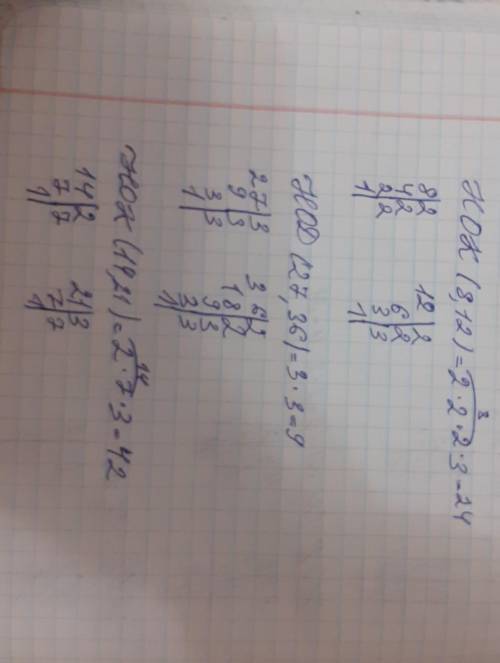 НОК (8,12)=2·2·2·3=24
8
8|2 12|2
4|2 6|2
2|2 3|3
1| 1|
НОД (27,36)=3·3=9
27|3 36|2
9|3 18|2
3|3 9|3
1| 3|3
1|
НОК (14,21)=2·7·3=42
14
14|2 21|3
7|7 7|7
1| 1|